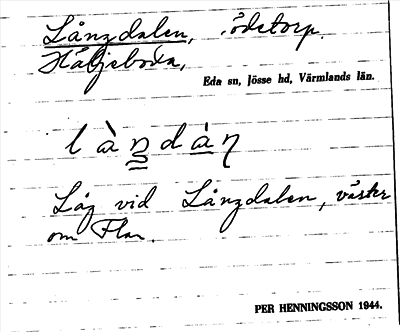 Långdalen, ödetorp.
Häljeboda,
Eda sn, Jösse hd, Värmlands län.
låŋdàn
Låg vid Långdalen, väster
om Flan.
PER HENNINGSSON 1944.